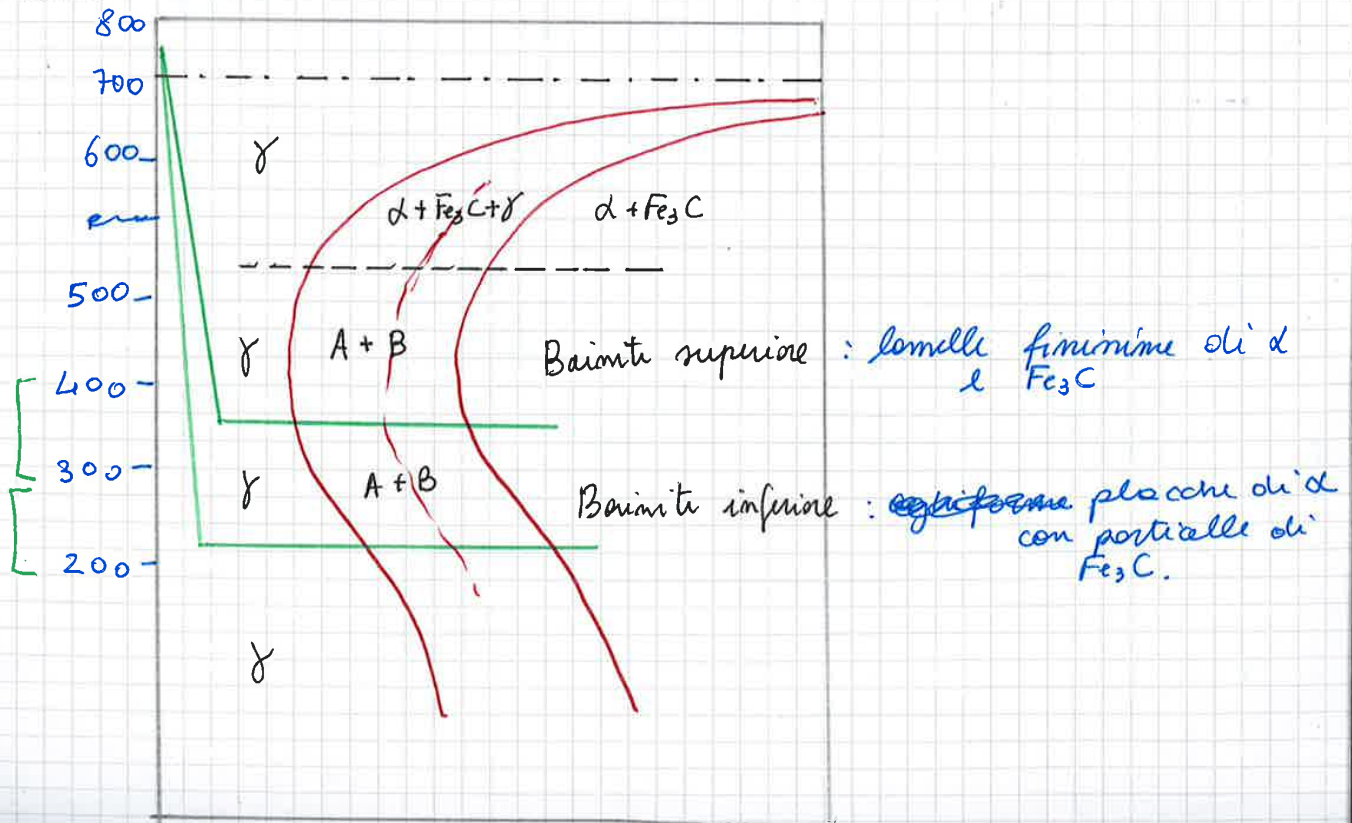 800
700
600
γ
α + Fe₃C + γ
α + Fe₃C
500
γ
A + B
Bainite superiore : lamelle finissime di α
e Fe₃C
400
300
γ
A + B
Bainite inferiore : placche di α
con particelle di
Fe₃C.
200
γ